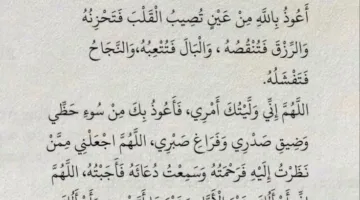 أَعُوذُ بِاللَّهِ مِنْ عَيْنٍ تُصِيبُ الْقَلْبَ فَتَحْزِنْهُ
وَالرِّزْقَ فَتُنْقُصُهُ ، وَالْبَالَ فَتُتْعِبُهُ،وَالنَّجَاحُ
فَتَفْشَلُهُ.
اللَّهُمَّ إِنِّي وَلَّيْتُكَ أَمْرِي، فَأَعُوذُ بِكَ مِنْ سُوءِ حَظِّي
وَضِيقِ صَدْرِي وَفَرَاغِ صَبْرِي، اللَّهُمَّ اجْعَلْنِي مِمَّنْ
نَظَرْتُ إِلَيْهِ فَرَحِمْتُهُ وَسَمِعْتُ دُعَائَهُ فَأَجَبْتُهُ، اللَّهُمَّ